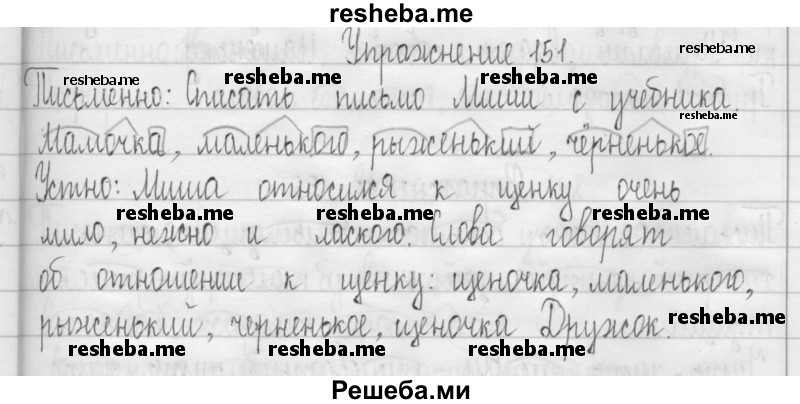 resheba.me
Упражнение 151.
resheba.me
resheba.me resheba.me resheba.me
Письменно: Списать письмо Миши с учебника.
resheba.me
Мамочка, маленького, рыженький, чёрненькое.
Устно: Миша относился к щенку очень
resheba.me resheba.me resheba.me
мило, нежно и лаского. Слова говорят
об отношении к щенку: щеночка, маленького,
resheba.me
рыженький, черненькое, щеночка Дружок.
resheba.me resheba.me resheba.me
Решеба.ми